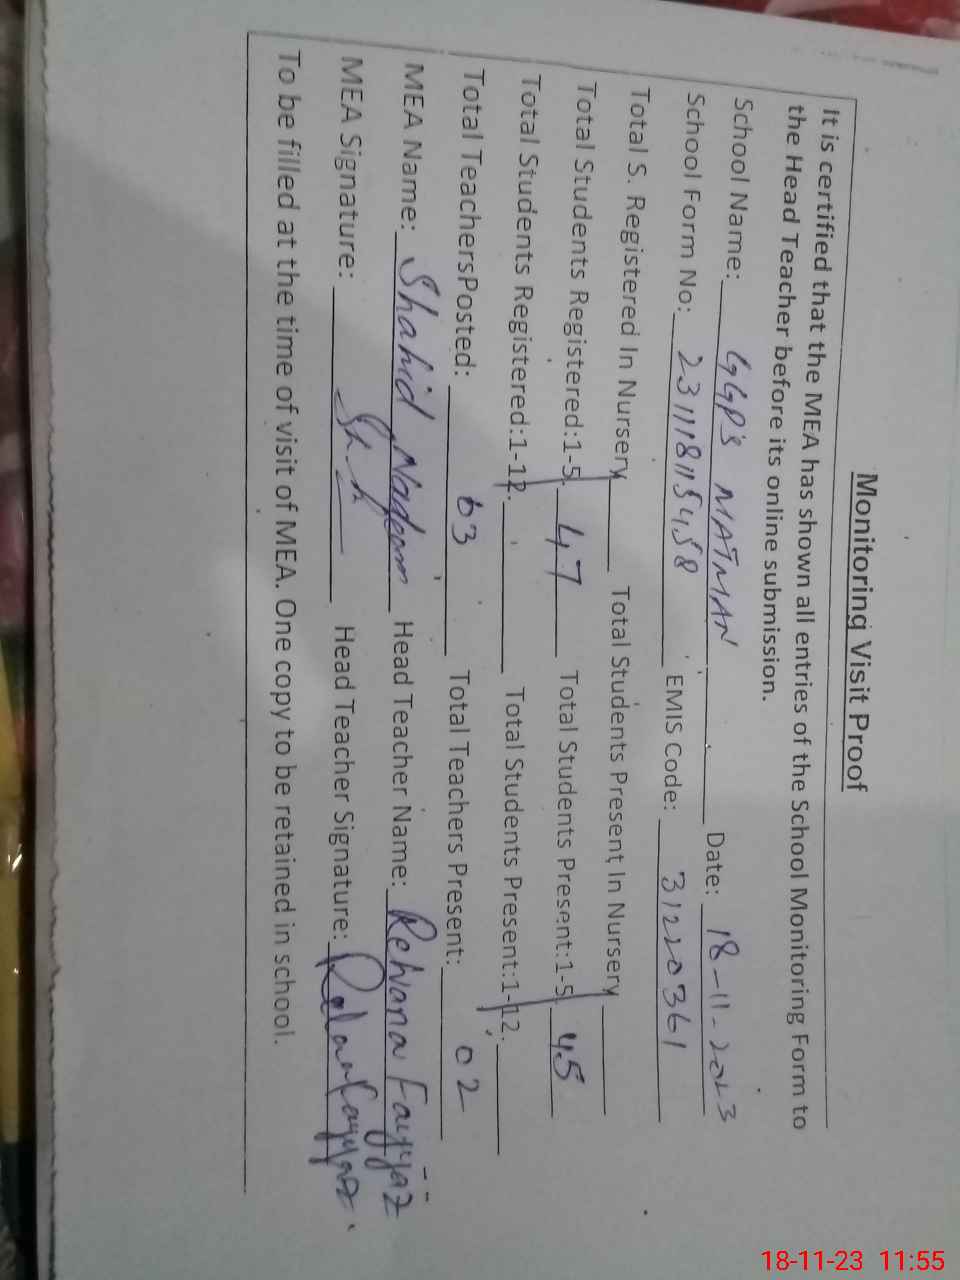 Monitoring Visit Proof
It is certified that the MEA has shown all entries of the School Monitoring Form to
the Head Teacher before its online submission.
School Name: GGPS MATMAN Date: 18-11-2023
School Form No: 231118115458 EMIS Code: 31220361
Total S. Registered In Nursery Total Students Present In Nursery
Total Students Registered:1-5 47 Total Students Present:1-5 45
Total Students Registered:1-12. Total Students Present:1-12.
Total TeachersPosted: 03 Total Teachers Present: 02
MEA Name: Shahid Nadeem Head Teacher Name: Rehana Fayyaz
MEA Signature: Head Teacher Signature: Rehana Fayyaz
To be filled at the time of visit of MEA. One copy to be retained in school.
18-11-23 11:55